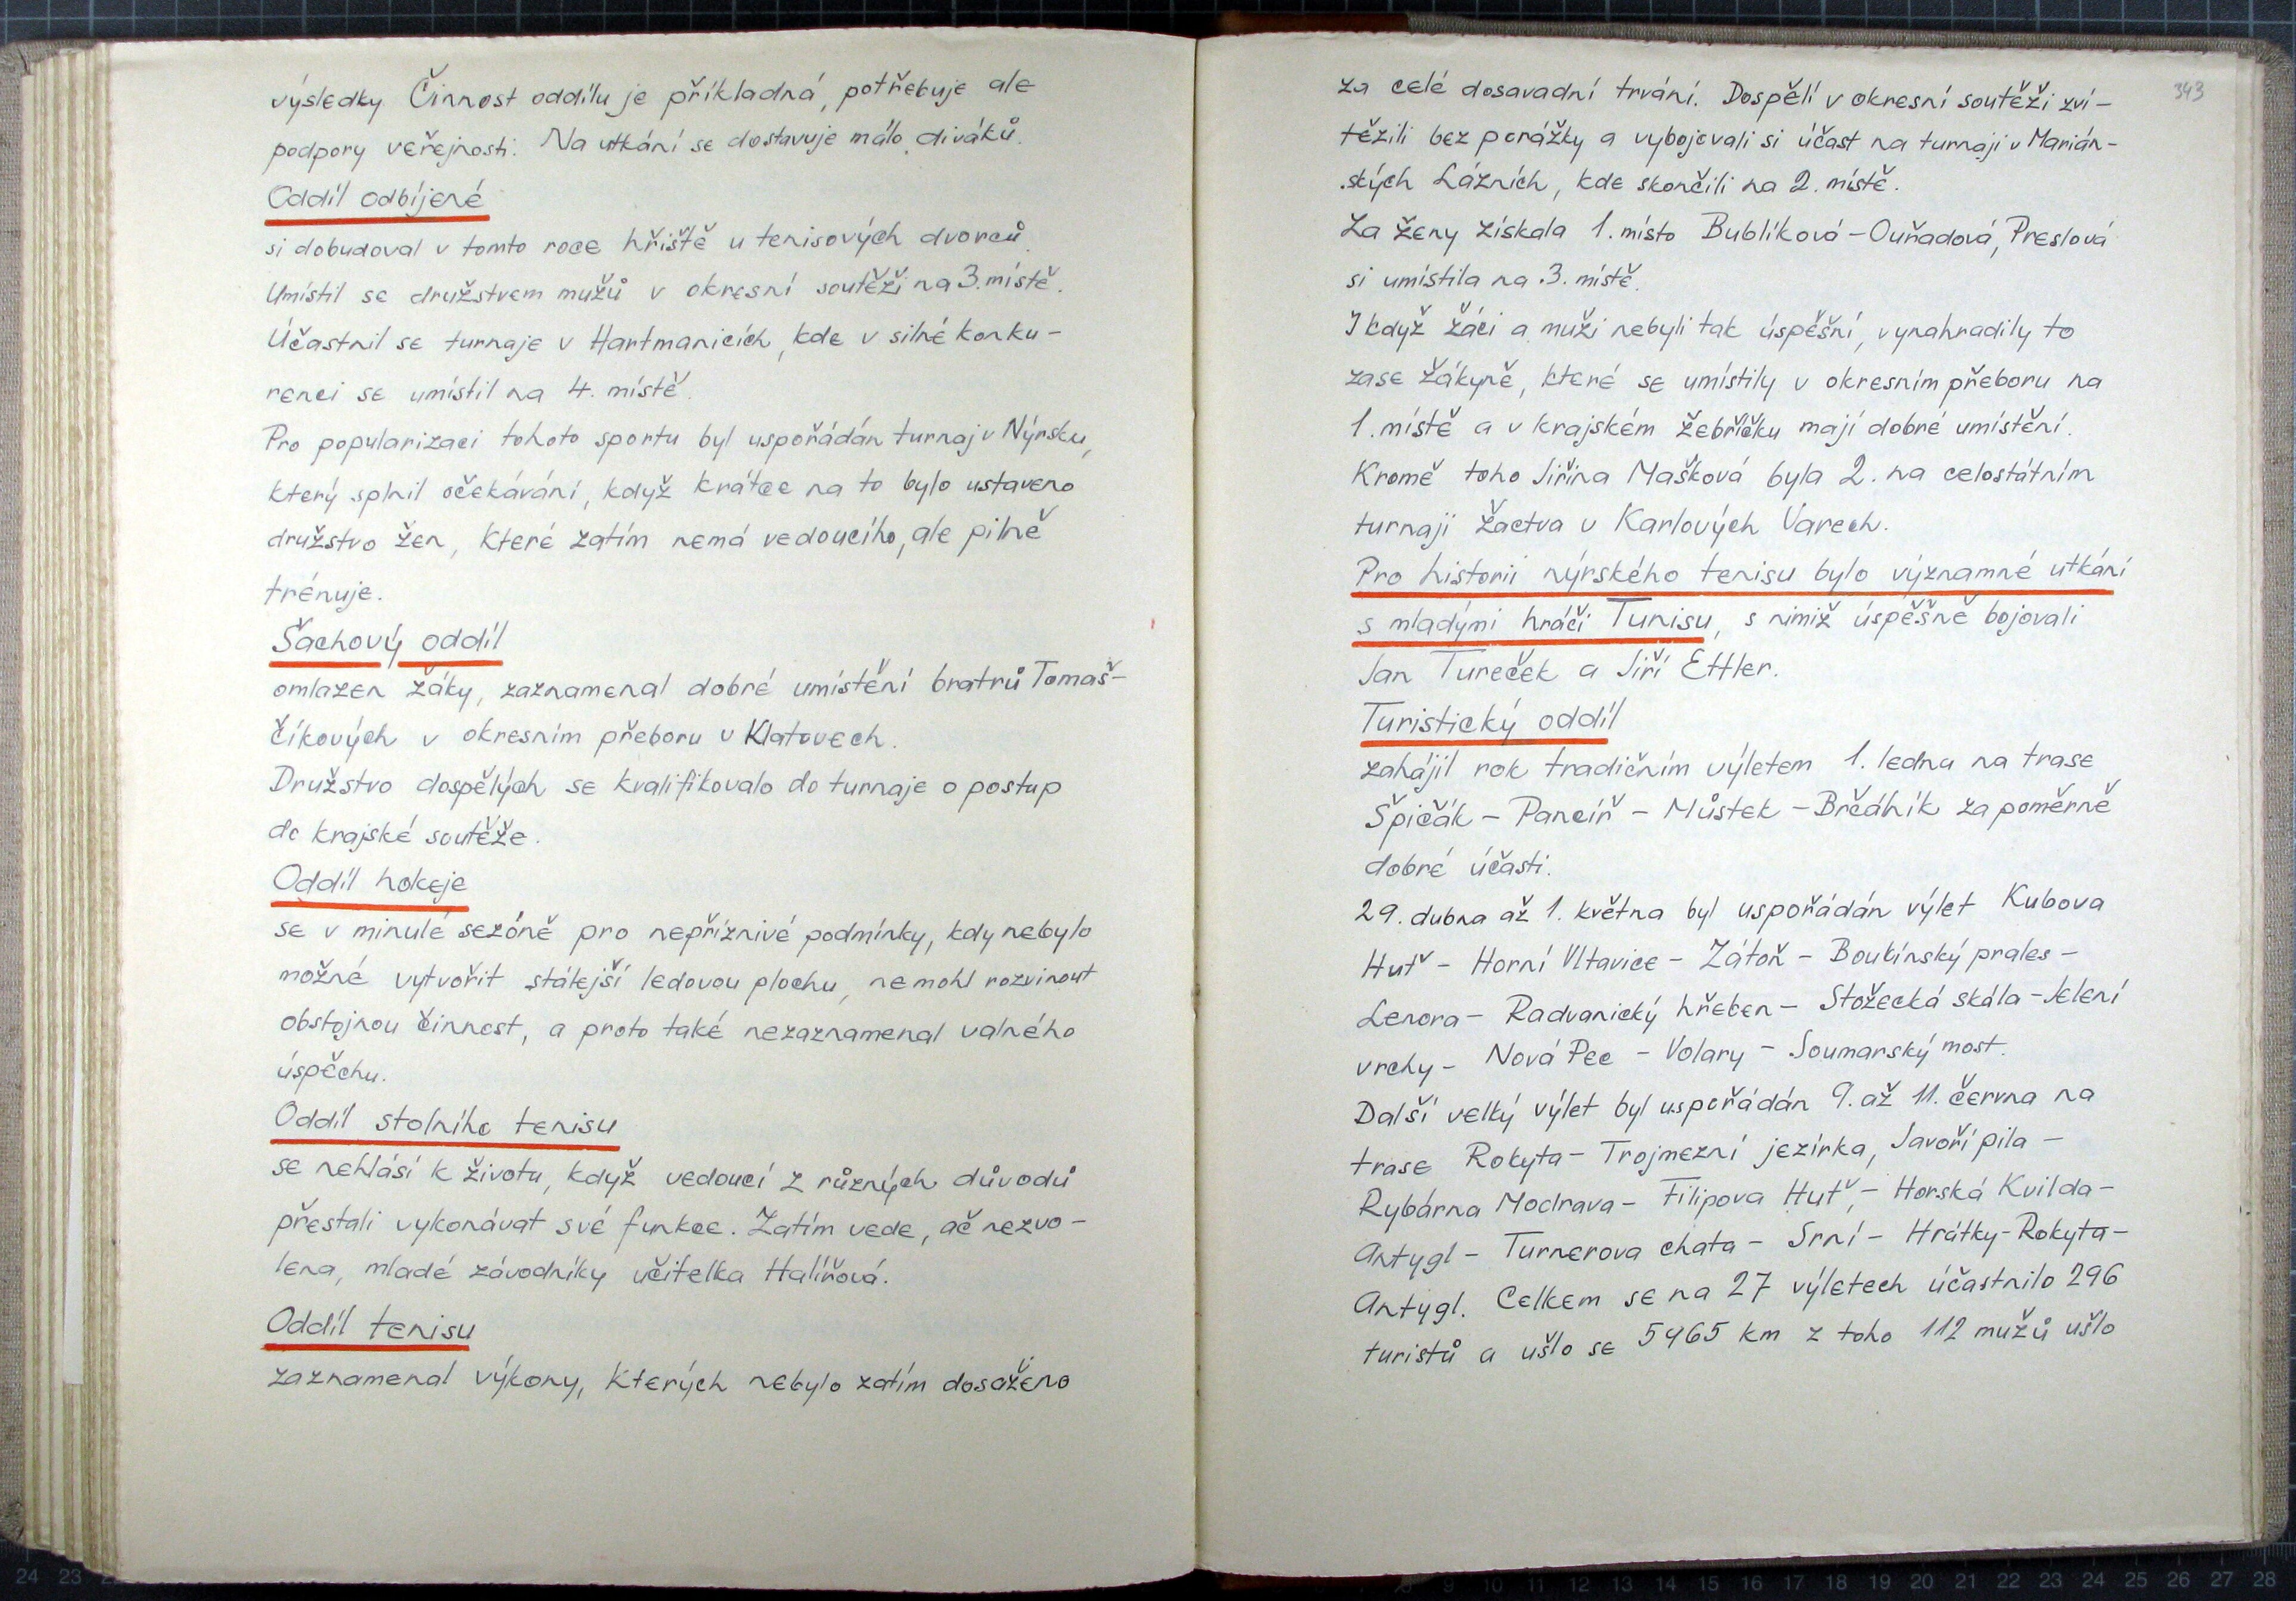 výsledky. Činnost oddílu je příkladná, potřebuje ale
podpory veřejnosti. Na utkání se dostavuje málo diváků.
Oddíl odbíjené
si dobudoval v tomto roce hřiště u tenisových dvorců.
Umístil se družstvem mužů v okresní soutěži na 3. místě.
Účastnil se turnaje v Hartmanicích, kde v silné konku-
renci se umístil na 4. místě.
Pro popularizaci tohoto sportu byl uspořádán turnaj v Nýrsku,
který splnil očekávání, když krátce na to bylo ustaveno
družstvo žen, které zatím nemá vedoucího, ale pilně
trénuje.
Šachový oddíl
omlazen žáky, zaznamenal dobré umístění bratrů Tomaš-
číkových v okresním přeboru v Klatovech.
Družstvo dospělých se kvalifikovalo do turnaje o postup
do krajské soutěže.
Oddíl hokeje
se v minulé sezóně pro nepříznivé podmínky, kdy nebylo
možné vytvořit stálejší ledovou plochu, nemohl rozvinout
obstojnou činnost, a proto také nezaznamenal valného
úspěchu.
Oddíl stolního tenisu
se nehlásí k životu, když vedoucí z různých důvodů
přestali vykonávat své funkce. Zatím vede, ač nezvo-
lena, mladé závodníky učitelka Halířová.
Oddíl tenisu
zaznamenal výkony, kterých nebylo zatím dosaženo
343
za celé dosavadní trvání. Dospělí v okresní soutěži zví-
tězili bez porážky a vybojovali si účast na turnaji v Marián-
ských Lázních, kde skončili na 2. místě.
Za ženy získala 1. místo Bublíková - Ouřadová, Preslová
si umístila na 3. místě.
I když žáci a muži nebyli tak úspěšní, vynahradily to
zase žákyně, které se umístily v okresním přeboru na
1. místě a v krajském žebříčku mají dobré umístění.
Kromě toho Jiřina Mašková byla 2. na celostátním
turnaji žactva v Karlových Varech.
Pro historii nýrského tenisu bylo významné utkání
s mladými hráči Tunisu, s nimiž úspěšně bojovali
Jan Tureček a Jiří Ettler.
Turistický oddíl
zahájil rok tradičním výletem 1. ledna na trase
Špičák - Pancíř - Můstek - Brčálník za poměrně
dobré účasti.
29. dubna až 1. května byl uspořádán výlet Kubova
Huť - Horní Vltavice - Zátoň - Boubínský prales -
Lenora - Radvanický hřeben - Stožecká skála - Jelení
vrchy - Nová Pec - Volary - Soumarský most.
Další velký výlet byl uspořádán 9. až 11. června na
trase Rokyta - Trojmezní jezírka, Javoří pila -
Rybárna Modrava - Filipova Huť, - Horská Kvilda -
Antygl - Turnerova chata - Srní - Hrátky - Rokyta -
Antygl. Celkem se na 27 výletech účastnilo 296
turistů a ušlo se 5965 km z toho 112 mužů ušlo
24 23
9 10 11 12 13 14 15 16 17 18 19 20 21 22 23 24 25 26 27 28